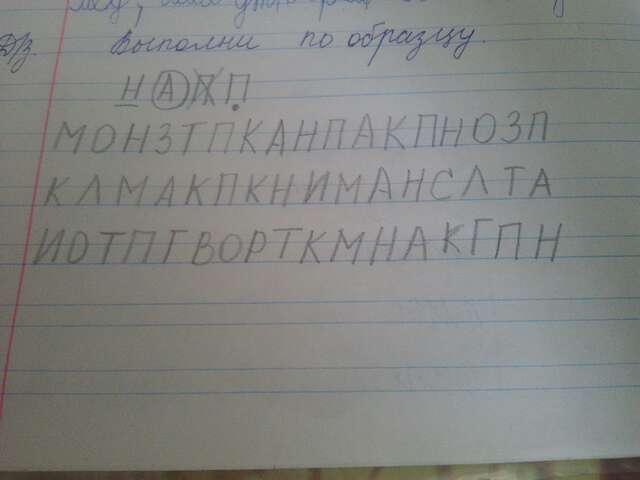 Д/З. Выполни по образцу.
Н А Л П
МОНЗТПКАНПАКПНОЗП
КЛМАКПКНИМАНСЛТА
ИОТПГВОРТКМНАКГПН